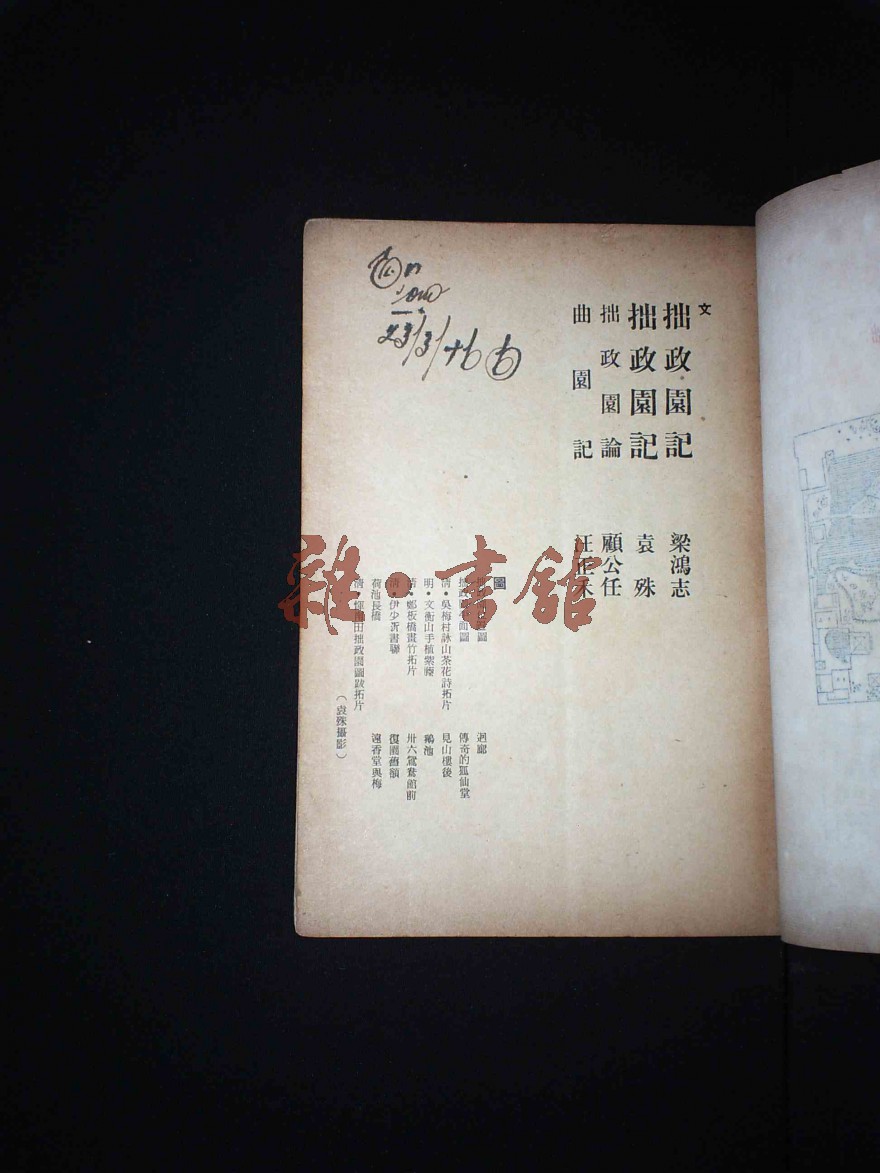 文
拙政園記　梁鴻志
拙政園記　袁殊
拙政園論　顧公任
曲園記　汪正禾
圖
迴廊
傳奇的狐仙堂
清·吳梅村詠山茶花詩拓片　見山樓後
明·文衡山手植紫藤　鵝池
清·鄭板橋畫竹拓片　卅六鴛鴦館前
清·伊少沂書聯　復園舊額
荷池長橋　遠香堂與梅
清·惲南田拙政園圖跋拓片
（袁殊攝影）
雜·書館